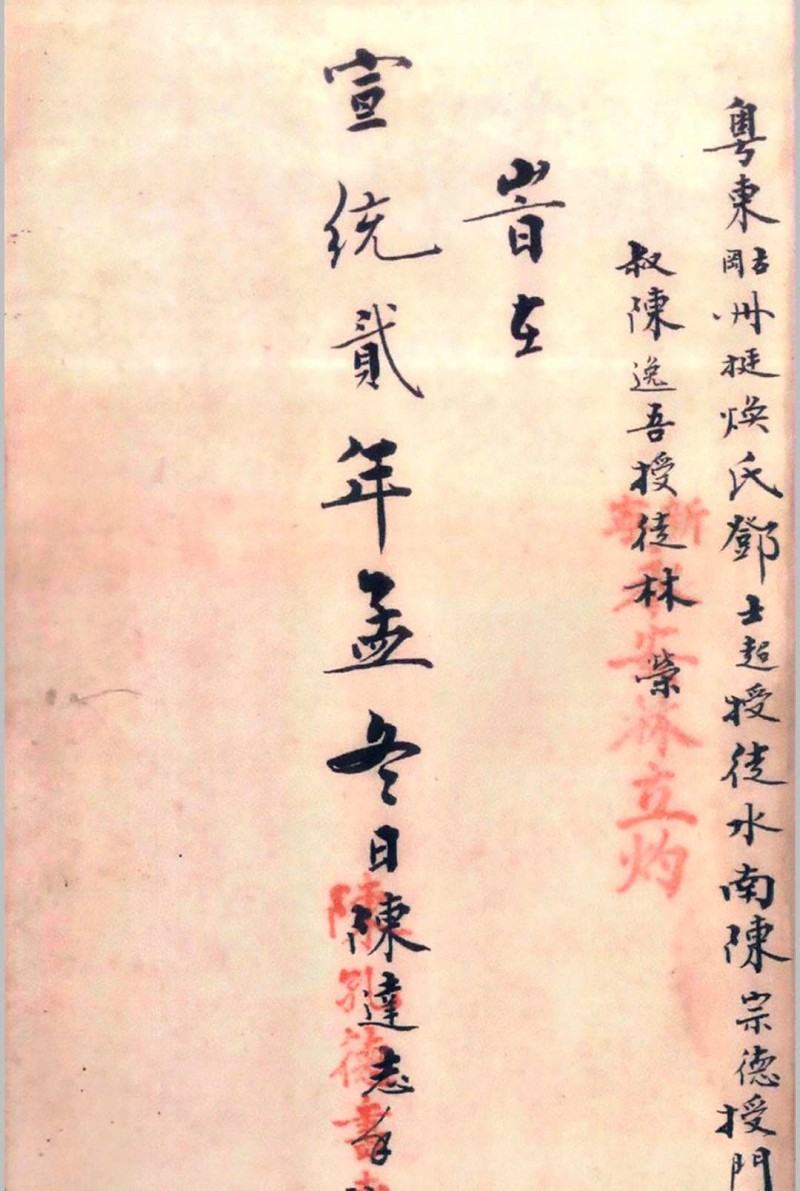 粵東岡州挺煥氏鄧士超授徒水南陳宗德授門
叔陳逸吾授徒林榮
旹在
宣統貳年孟冬日陳達志
林立灼
陳 德